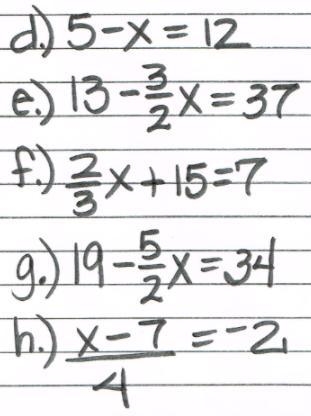 d.) 5-x = 12
e.) 13 - 3/2 x = 37
f.) 2/3 x + 15 = 7
g.) 19 - 5/2 x = 34
h.) (x - 7)/4 = -2